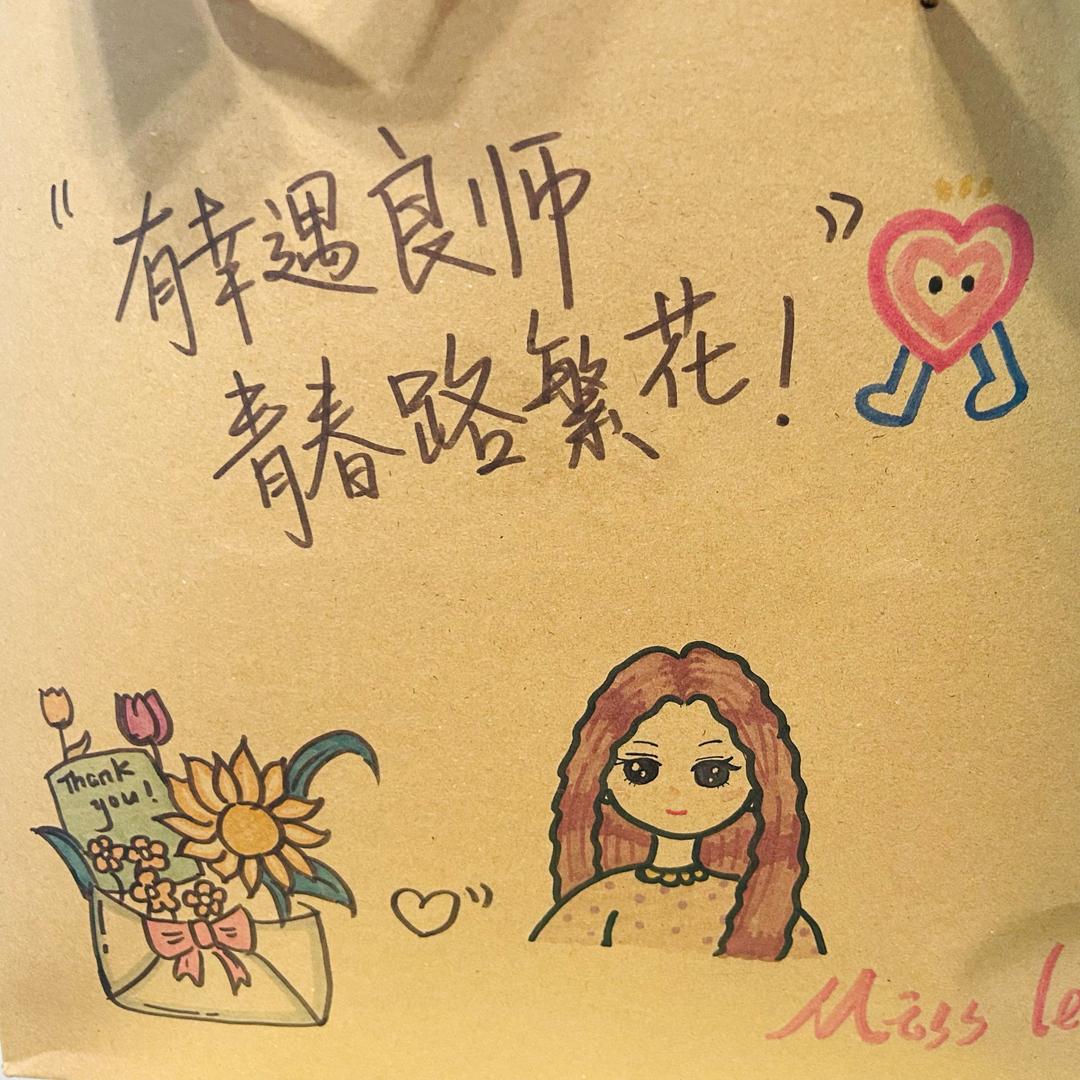 “有幸遇良师
青春路繁花！”
Thank
you!
Miss le